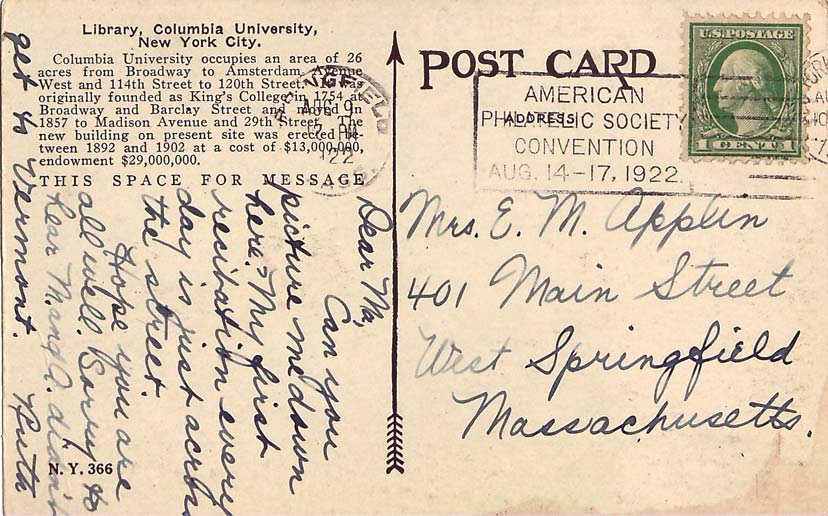 Library, Columbia University,
New York City.
Columbia University occupies an area of 26
acres from Broadway to Amsterdam Avenue
West and 114th Street to 120th Street. It was
originally founded as King's College in 1754 at
Broadway and Barclay Street and moved in
1857 to Madison Avenue and 29th Street. The
new building on present site was erected be-
tween 1892 and 1902 at a cost of $13,000,000,
endowment $29,000,000.
THIS SPACE FOR MESSAGE
Dear Ma,
Can you
picture me down
here? My first
recitation every
day is just across
the street.
Hope you are
all well. Sorry to
hear M. and A. didn't
get to Vermont.
Ruth
N. Y. 366
AUG
22
POST CARD
ADDRESS
AMERICAN
PHILATELIC SOCIETY
CONVENTION
AUG. 14-17, 1922
U.S. POSTAGE
1 CENT 1
Mrs. E. M. Applin
401 Main Street
West Springfield
Massachusetts.